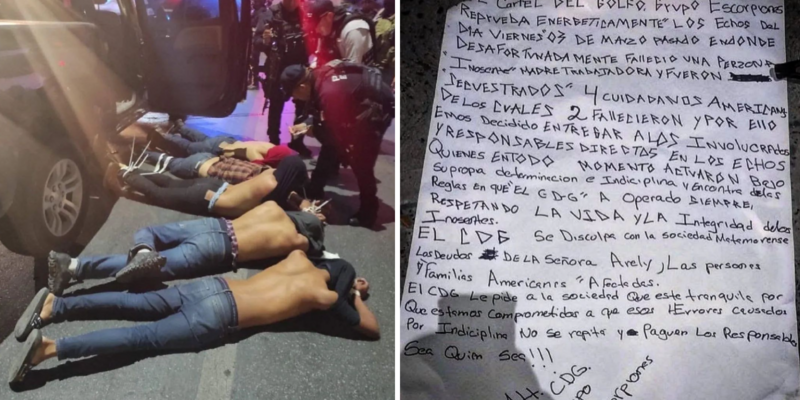 EL CARTEL DEL GOLFO, GRUPO ESCORPIONES
REPRUEBA ENERGETICAMENTE" LOS ECHOS DEL
DIA VIERNES"03 DE MARZO PASADO ENDONDE
DESAFORTUNADAMENTE FALLECIO UNA PERSONA
"INOSENTE" MADRE TRABAJADORA Y FUERON
SECUESTRADOS" 4 CUIDADANOS AMERICANOS
DE LOS CUALES 2 FALLECIERON Y POR ELLO
EMOS DECIDIDO ENTREGAR A LOS INVOLUCRADOS
Y RESPONSABLES DIRECTOS EN LOS ECHOS
QUIENES ENTODO MOMENTO ACTUARON BAJO
SU PROPIA determinacion e Indiciplina y Encontra de las
Reglas en que"EL CDG" A Operado SIEMPRE,
RESPETANDO LA VIDA Y LA Integridad de los
Inosentes.
EL CDG Se Disculpa con la sociedad Matamorense
Los Deudos DE LA Señora Arely y Las personas
y Familias Americanas "Afectadas.
El CDG Le pide a la sociedad Que este tranquila por
Que estamos comprometidos a que esos "Errores causados
Por Indiciplina No se repita y Paguen Los Responsables
Sea Quien Sea!!!
CDG.
Escorpiones